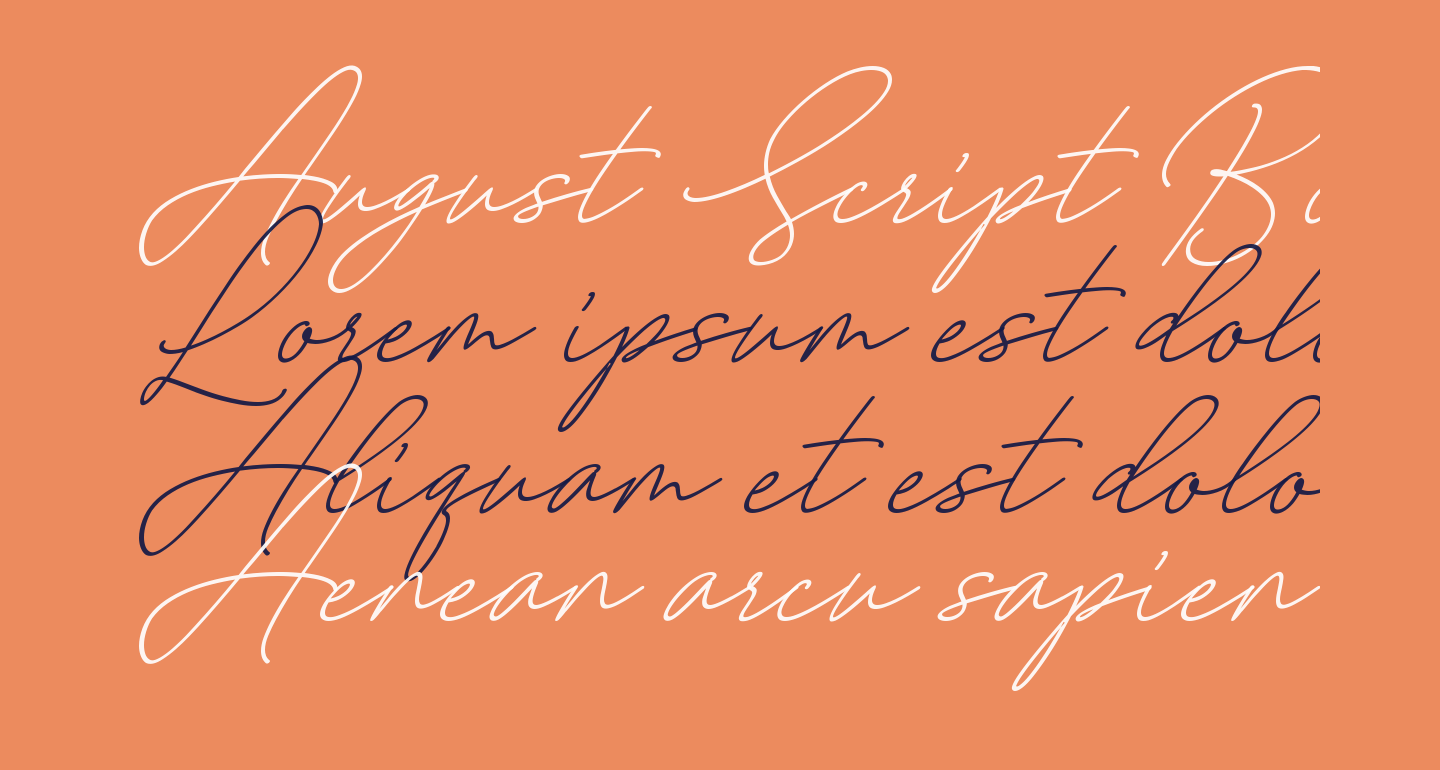 August Script B
Lorem ipsum est dol
Aliquam et est dolo
Aenean arcu sapien